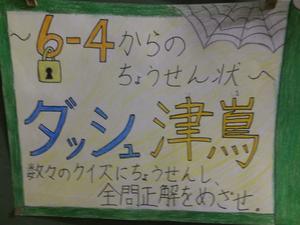 ～6-4からの
ちょうせん状～
ダッシュ津嶌
数々のクイズにちょうせんし、
全問正解をめざせ。